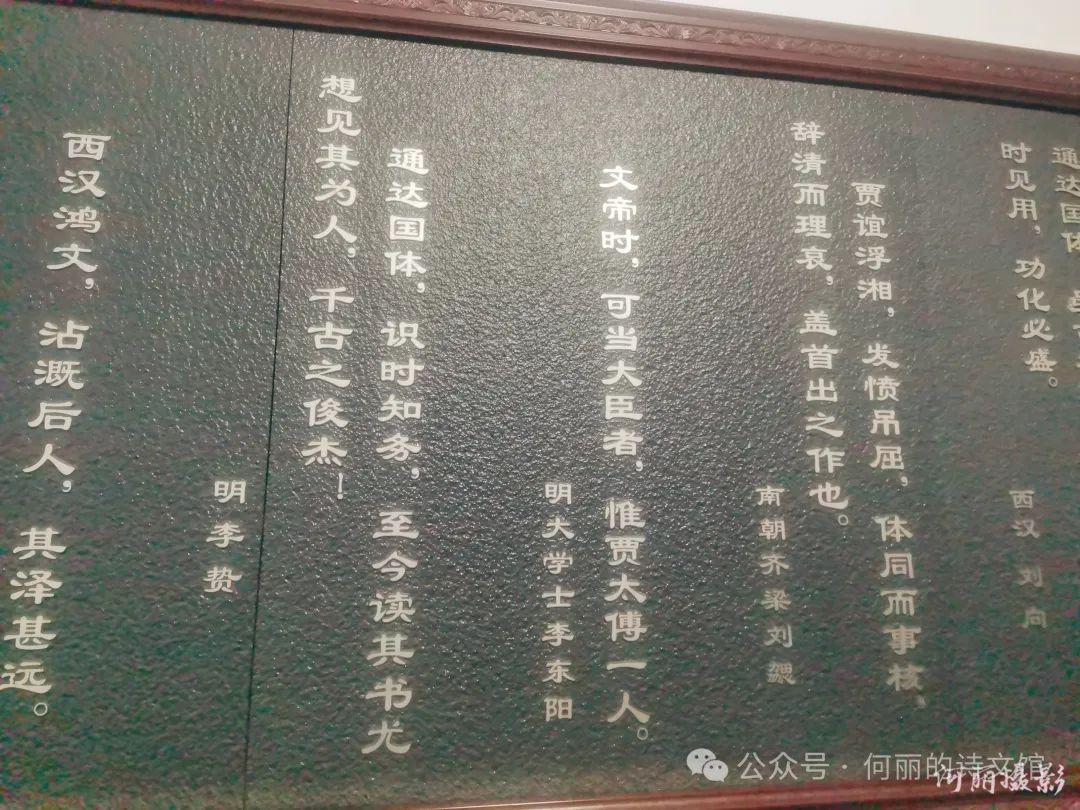 通达国体
时见用，功化必盛。
西汉 刘向
贾谊浮湘，发愤吊屈，体同而事核，
辞清而理哀，盖首出之作也。
南朝齐梁刘勰
文帝时，可当大臣者，惟贾太傅一人。
明大学士李东阳
通达国体，识时知务，至今读其书尤
想见其为人，千古之俊杰！
明李贽
西汉鸿文，沾溉后人，其泽甚远。
公众号·何丽的诗文馆
何丽摄影